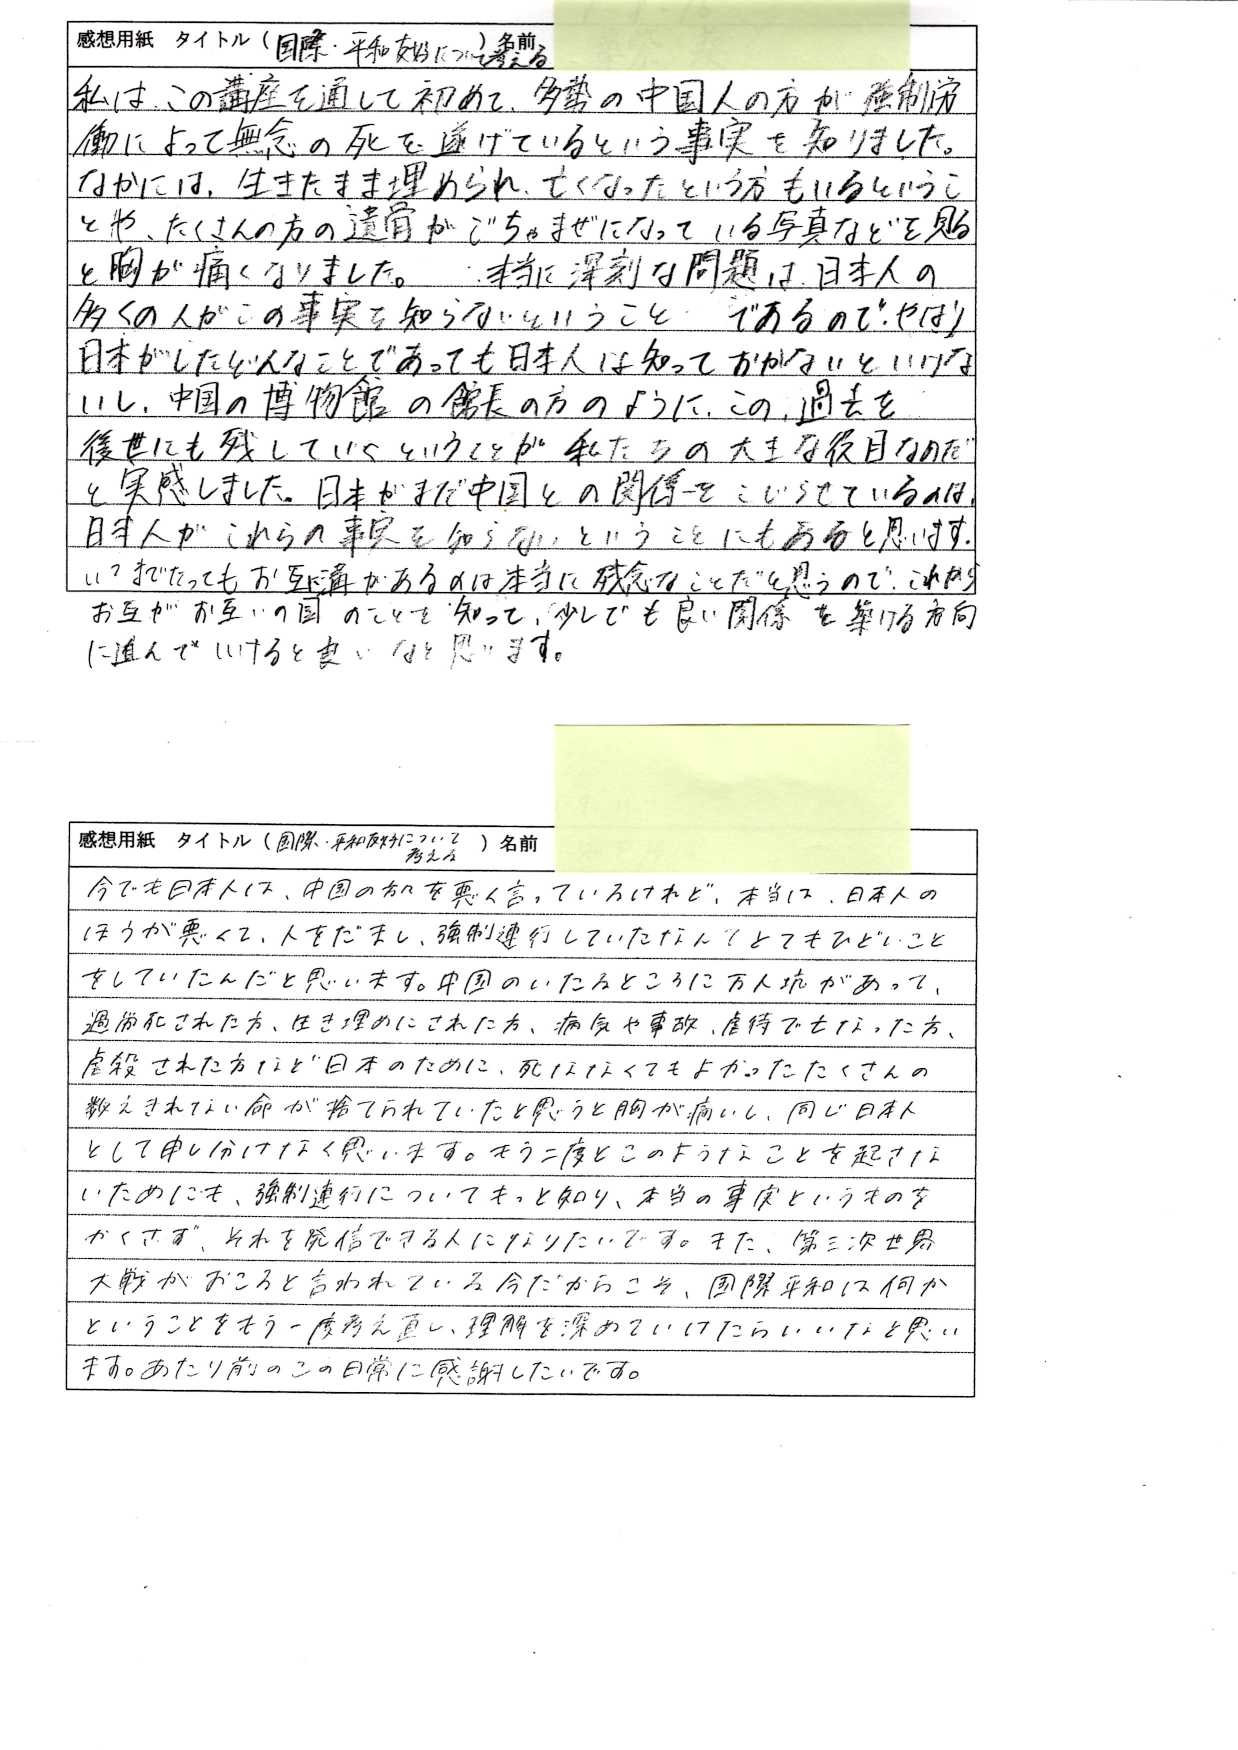 感想用紙 タイトル（国際・平和友好について考える）名前
私は、この講座を通して初めて、多勢の中国人の方が強制労
働によって無念の死を遂げているという事実を知りました。
なかには、生きたまま埋められ、亡くなったという方もいるというこ
とや、たくさんの方の遺骨がごちゃまぜになっている写真などを見る
と胸が痛くなりました。 本当に深刻な問題は、日本人の
多くの人がこの事実を知らないということ であるので、やはり
日本がしたどんなことであっても日本人は知っておかないといけな
いし、中国の博物館の館長の方のように、この過去を
後世にも残していくということが私たちの大事な役目なのだ
と実感しました。日本がまだ中国との関係をこじらせているのは、
日本人がこれらの事実を知らないということにもあると思います。
いつまでたってもお互い溝があるのは本当に残念なことだと思うので、これから
お互がお互いの国のことを知って、少しでも良い関係を築ける方向
に進んでいけると良いなと思います。
感想用紙 タイトル（国際・平和友好について考える）名前
今でも日本人は、中国の方々を悪く言っているけれど、本当は、日本人の
ほうが悪くて、人をだまし、強制連行していたなんてとてもひどいこと
をしていたんだと思います。中国のいたるところに万人坑があって、
過労死された方、生き埋めにされた方、病気や事故、虐待で亡なった方、
虐殺された方など日本のために、死ななくてもよかったたくさんの
数えきれない命が捨てられていたと思うと胸が痛いし、同じ日本人
として申し分けなく思います。もう二度とこのようなことを起さな
いためにも、強制連行についてもっと知り、本当の事実というものを
かくさず、それを発信できる人になりたいです。また、第三次世界
大戦がおころと言われている今だからこそ、国際平和は何か
ということをもう一度考え直し、理解を深めていけたらいいなと思い
ます。あたり前のこの日常に感謝したいです。